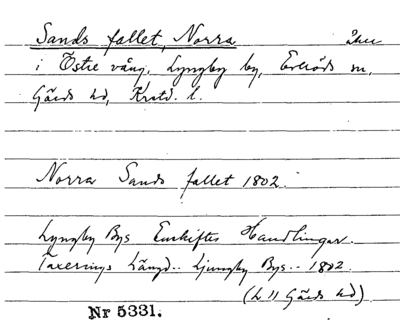 Sands fallet, Norra åker
i Östre vång, Lyngby by, Everöds sn,
Gärds hd, Krstd. l.
Norra Sands fallet 1802.
Lyngby Bys Enskiftes Handlingar.
Taxerings Längd.. Ljungby Bys.. 1802.
(L 11 Gärds hd)
Nr 5331.